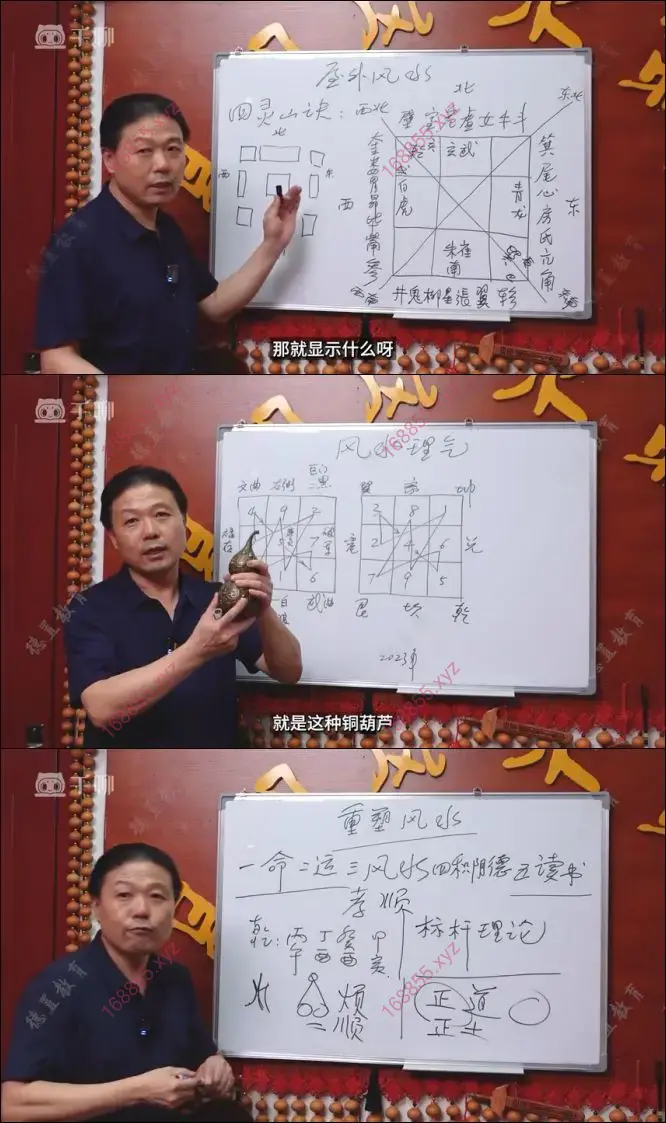 千聊
屋外风水
四灵山诀:
北
西
东
西北
北
东北
壁室危虚女牛斗
奎娄胃昴毕觜参
玄武
白虎
青龙
朱雀
南
西
东
箕尾心房氐亢角
井鬼柳星張翼轸
德孟教育
168855.xyz
那就显示什么呀
千聊
风水理气
文曲
4 9 2
7
1 6
武曲
3 8 1
2 4 6
7 9 5
兑
坎
乾
2023年
168855.xyz
就是这种铜葫芦
千聊
重塑风水
一命二运三风水四积阴德五读书
孝顺
乾:丙丁癸甲
午酉酉
标杆理论
烦
=顺
正道
正
168855.xyz